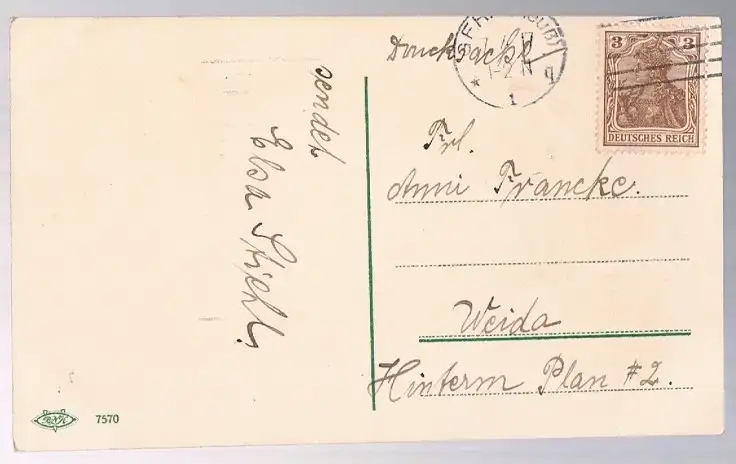 sendet
Elsa Stichl,
Drucksache
1-2 N
3 3
DEUTSCHES REICH
Frl.
Anni Francke.
Weida
Hinterm Plan #2.
7570